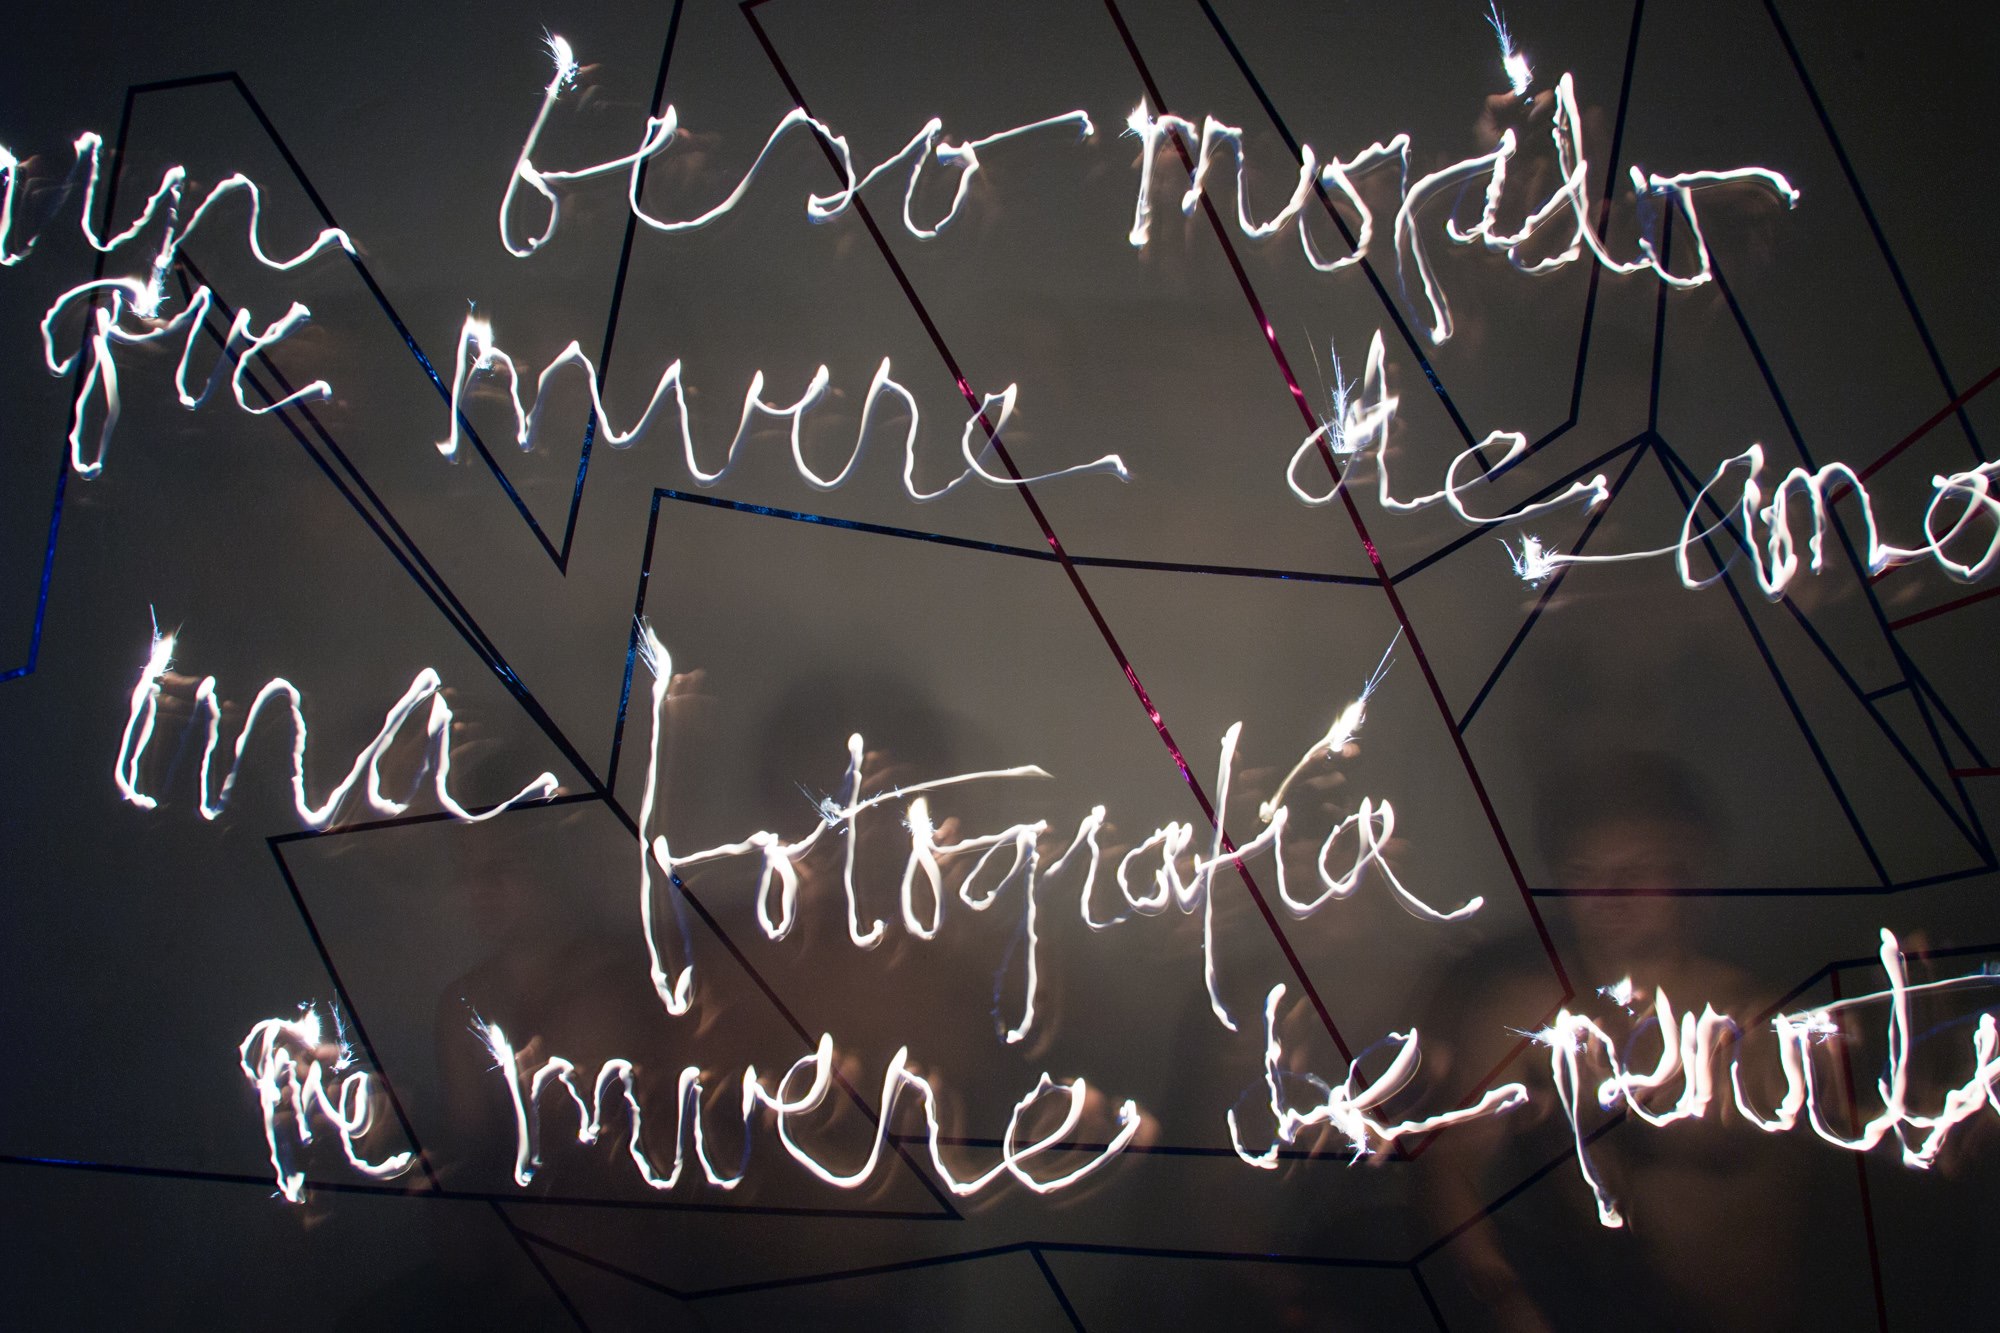 un beso mojado
que muere de amo
una fotografía
que muere de